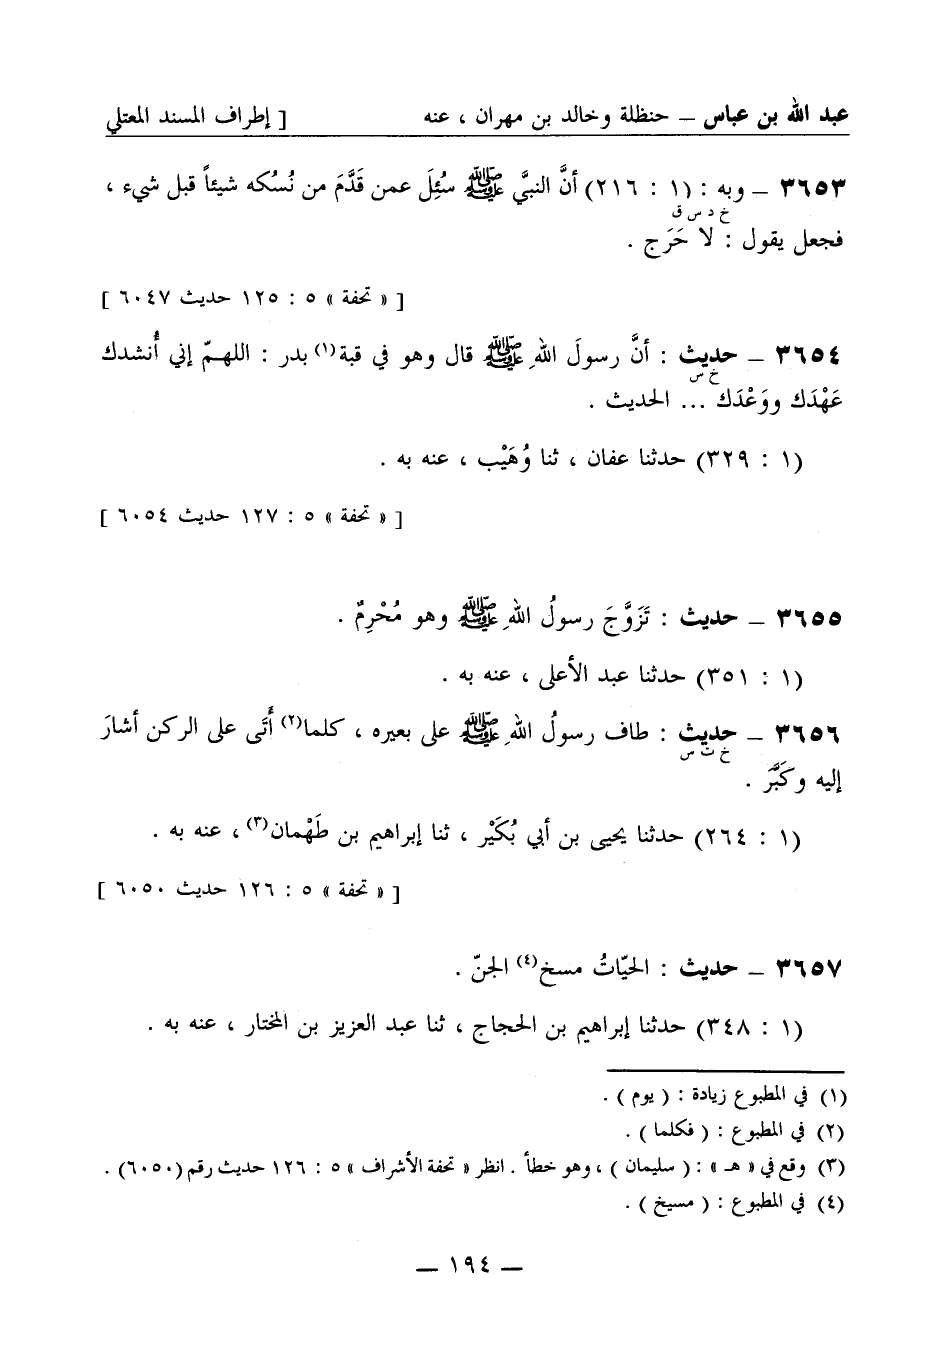 عبد الله بن عباس – حنظلة وخالد بن مهران ، عنه [ إطراف المسند المعتلي
٣٦٥٣ – وبه : (١ : ٢١٦) أنَّ النبيَّ ﷺ سُئِلَ عمن قَدَّمَ من نُسُكه شيئاً قبل شيء ،
خ د س ق
فجعل يقول : لا حَرَج .
[ « تحفة » ٥ : ١٢٥ حديث ٦٠٤٧ ]
٣٦٥٤ – حديث : أنَّ رسولَ اللهِ ﷺ قال وهو في قبة(١) بدر : اللهمّ إني أُنشدك
خ س
عَهْدَك ووَعْدَك ... الحديث .
(١ : ٣٢٩) حدثنا عفان ، ثنا وُهَيْب ، عنه به .
[ « تحفة » ٥ : ١٢٧ حديث ٦٠٥٤ ]
٣٦٥٥ – حديث : تَزَوَّجَ رسولُ اللهِ ﷺ وهو مُحْرِمٌ .
(١ : ٣٥١) حدثنا عبد الأعلى ، عنه به .
٣٦٥٦ – حديث : طاف رسولُ اللهِ ﷺ على بعيره ، كلما(٢) أَتَى على الركن أشارَ
خ ت س
إليه وكَبَّرَ .
(١ : ٢٦٤) حدثنا يحيى بن أبي بُكَيْر ، ثنا إبراهيم بن طَهْمان(٣) ، عنه به .
[ « تحفة » ٥ : ١٢٦ حديث ٦٠٥٠ ]
٣٦٥٧ – حديث : الحيّاتُ مسخ(٤) الجنّ .
(١ : ٣٤٨) حدثنا إبراهيم بن الحجاج ، ثنا عبد العزيز بن المختار ، عنه به .
(١) في المطبوع زيادة : ( يوم ) .
(٢) في المطبوع : ( فكلما ) .
(٣) وقع في « هـ » : ( سليمان ) ، وهو خطأ . انظر « تحفة الأشراف » ٥ : ١٢٦ حديث رقم (٦٠٥٠) .
(٤) في المطبوع : ( مسيخ ) .
– ١٩٤ –